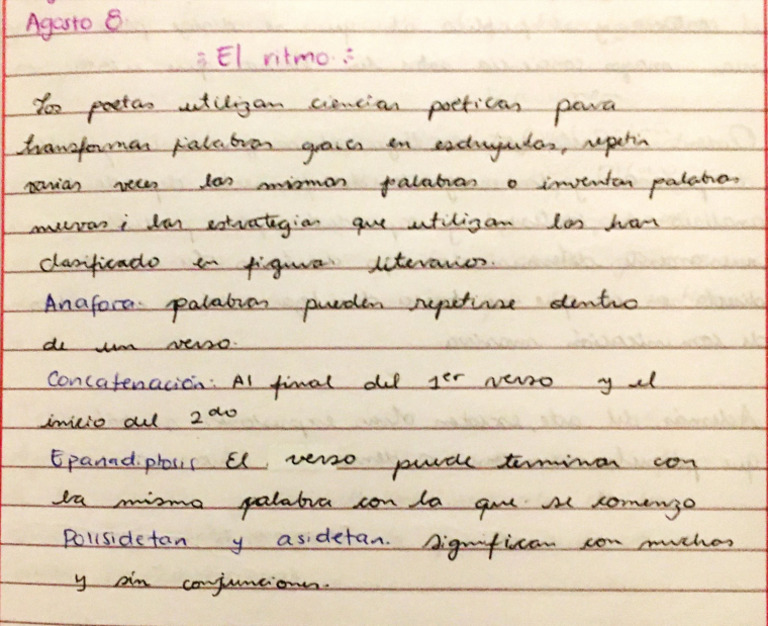 Agosto 8
: El ritmo. :
Los poetas utilizan ciencias poéticas para
transformar palabras graves en esdrujulas, repetir
varias veces las mismas palabras o inventar palabras
nuevas; las estrategias que utilizan las han
clasificado en figuras literarios.
Anafora: palabras pueden repetirse dentro
de un verso.
Concatenación: Al final del 1er verso y el
inicio del 2do
Epanadiplosis El verso puede terminar con
la misma palabra con la que se comenzo
Polisidetan y asidetan. significan con muchas
y sin conjunciones.